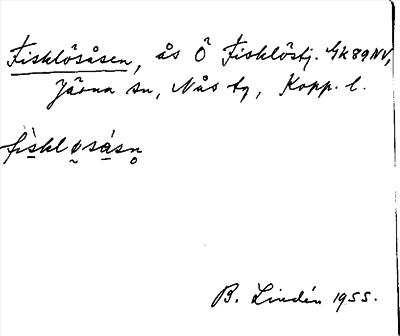 Fisklösåsen, ås Ö Fisklöstj. Gk 89 NV,
Järna sn, Nås tg, Kopp. l.
fìskl øsásn̥
B. Lindén 1955.